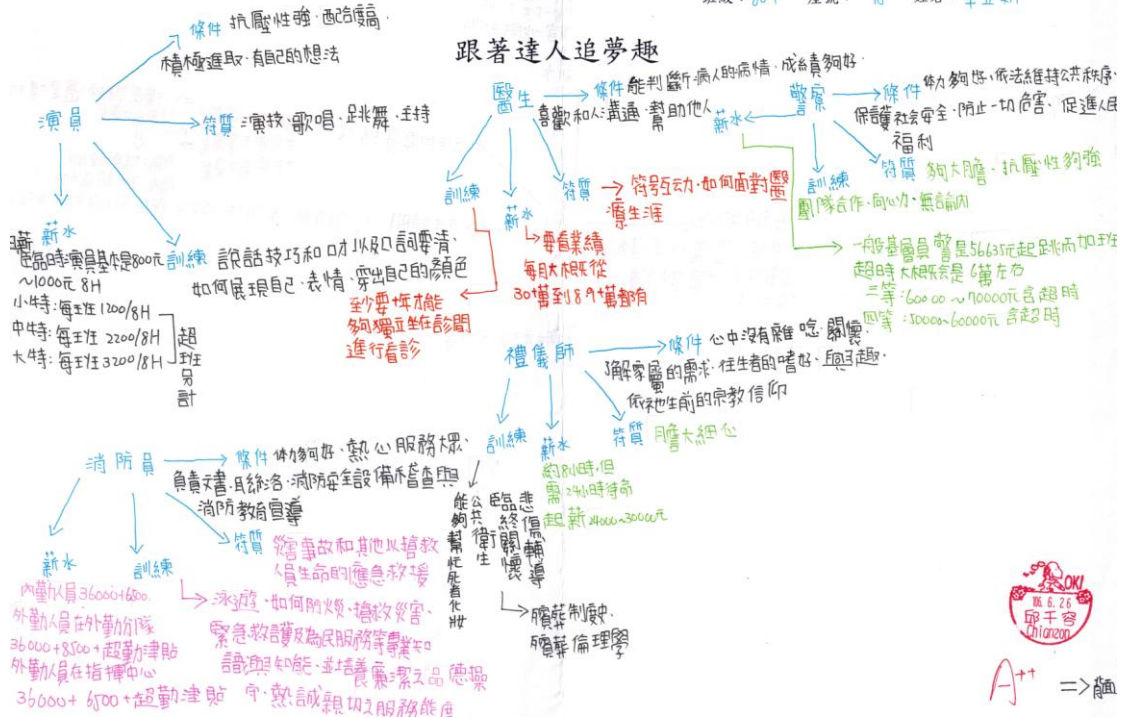 跟著達人追夢趣
演員
條件 抗壓性強、配合度高、
積極進取、有自己的想法
符質 演技、歌唱、跳舞、主持
薪水
臨時演員基本是800元
~1000元 8H
小特:每班1200/8H
中特:每班2200/8H
大特:每班3200/8H
超班另計
訓練 說話技巧和口才以及口詞要清、
如何展現自己、表情、穿出自己的顏色
醫生
條件 能判斷病人的病情、成績夠好、
喜歡和人溝通、幫助他人
訓練
至少要十年才能
夠獨立坐在診間
進行看診
薪水
要看業績
每月大概從
30萬到89十萬都有
符質
符号互动、如何面對醫
療生涯
警察
條件 体力夠好、依法維持公共秩序、
保護社會安全、防止一切危害、促進人民
福利
薪水
一般基層員警是56635元起跳而加班
超時大概會是6萬左右
三等:60000~70000元含超時
四等:50000~60000元含超時
訓練
團隊合作、向心力、無論內
符質 夠大膽、抗壓性夠強
禮儀師
條件 心中沒有雜唸、關懷、
了解家屬的需求、往生者的嗜好、興趣、
依祂生前的宗教信仰
訓練
悲傷輔導
臨終關懷
公共衛生
能夠幫忙死者化妝
殯葬制度史、
殯葬倫理學
薪水
約8小時,但
需24小時待命
起薪24000~30000元
符質 膽大細心
消防員
條件 体力夠好、熱心服務大眾、
負責文書、聯絡、消防安全設備稽查與
消防教育宣導
薪水
內勤人員36000+6500.
外勤人員在外勤分隊
36000+8500+超勤津貼
外勤人員在指揮中心
36000+6500+超勤津貼
訓練
泳遊、如何防火、搶救災害、
緊急救護及為民服務等專業知
識與知能、並培養廉潔之品德操
守、熱誠親切之服務態度
符質
災害事故和其他以搶救
人員生命的應急救援
OK!
106.6.26
邱千容
Chianzon
A++